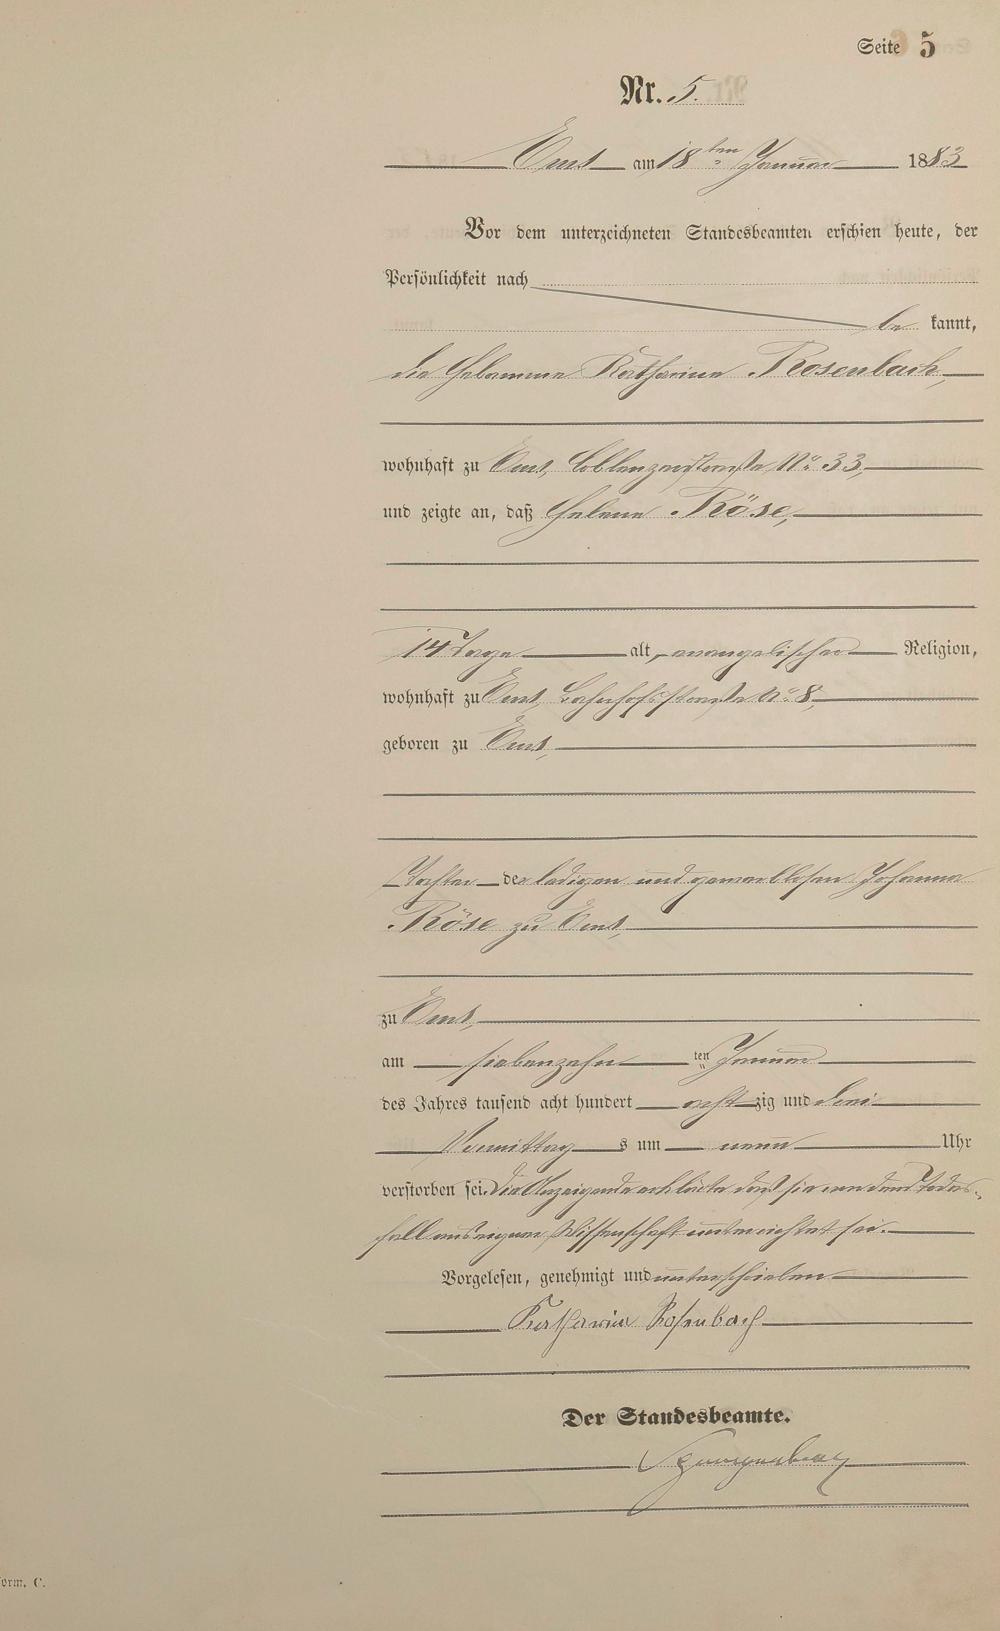 Seite 5
Nr. 5.
Ems am 18ten Januar 1883
Vor dem unterzeichneten Standesbeamten erschien heute, der
Persönlichkeit nach
be kannt,
die Hebamme Katharina Rosenbach,
wohnhaft zu Ems, Coblenzerstraße No 33,
und zeigte an, daß Helene Röse,
14 Tage alt, evangelischer Religion,
wohnhaft zu Ems, Bahnhofsstraße No 8,
geboren zu Ems,
Tochter der ledigen und gewerblosen Johanna
Röse zu Ems,
zu Ems,
am siebenzehn ten Januar
des Jahres tausend acht hundert acht zig und drei
Vormittag s um neun Uhr
verstorben sei. Die Anzeigende erklärte daß sie von dem Todes-
fall aus eigner Wissenschaft unterrichtet sei.
Vorgelesen, genehmigt und unterschrieben
Katharina Rosenbach
Der Standesbeamte.
Spangenberg
orm. C.